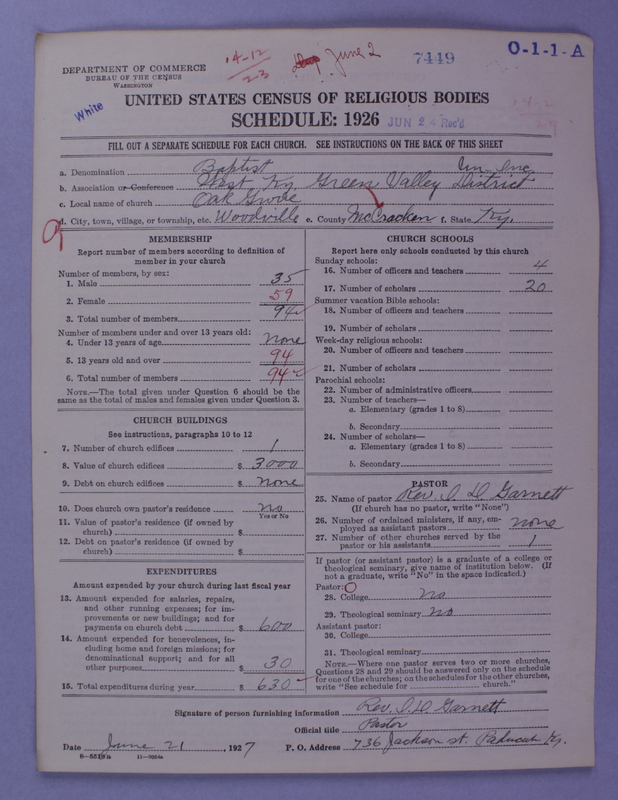 14-12
23
June 2
7449
O-1-1-A
DEPARTMENT OF COMMERCE
BUREAU OF THE CENSUS
WASHINGTON
White
UNITED STATES CENSUS OF RELIGIOUS BODIES
SCHEDULE: 1926 JUN 24 Rec'd
FILL OUT A SEPARATE SCHEDULE FOR EACH CHURCH. SEE INSTRUCTIONS ON THE BACK OF THIS SHEET
a. Denomination Baptist Un. Inc
b. Association or Conference West Ky Green Valley District
c. Local name of church Oak Grove
d. City, town, village, or township, etc. Woodville e. County McCracken f. State Ky.
9
MEMBERSHIP
Report number of members according to definition of
member in your church
Number of members, by sex:
1. Male 35
2. Female 59
3. Total number of members 94
Number of members under and over 13 years old:
4. Under 13 years of age none
5. 13 years old and over 94
6. Total number of members 94
NOTE.—The total given under Question 6 should be the
same as the total of males and females given under Question 3.
CHURCH BUILDINGS
See instructions, paragraphs 10 to 12
7. Number of church edifices 1
8. Value of church edifices $ 3000
9. Debt on church edifices $ none
10. Does church own pastor's residence? no
Yes or No
11. Value of pastor's residence (if owned by
church) $
12. Debt on pastor's residence (if owned by
church) $
EXPENDITURES
Amount expended by your church during last fiscal year
13. Amount expended for salaries, repairs,
and other running expenses; for im-
provements or new buildings; and for
payments on church debt $ 600
14. Amount expended for benevolences, in-
cluding home and foreign missions; for
denominational support; and for all
other purposes $ 30
15. Total expenditures during year $ 630
CHURCH SCHOOLS
Report here only schools conducted by this church
Sunday schools:
16. Number of officers and teachers 4
17. Number of scholars 20
Summer vacation Bible schools:
18. Number of officers and teachers
19. Number of scholars
Week-day religious schools:
20. Number of officers and teachers
21. Number of scholars
Parochial schools:
22. Number of administrative officers
23. Number of teachers—
a. Elementary (grades 1 to 8)
b. Secondary
24. Number of scholars—
a. Elementary (grades 1 to 8)
b. Secondary
PASTOR
25. Name of pastor Rev. I. D. Garnett
(If church has no pastor, write "None")
26. Number of ordained ministers, if any, em-
ployed as assistant pastors none
27. Number of other churches served by the
pastor or his assistants 1
If pastor (or assistant pastor) is a graduate of a college or
theological seminary, give name of institution below. (If
not a graduate, write "No" in the space indicated.)
Pastor:
28. College no
29. Theological seminary no
Assistant pastor:
30. College
31. Theological seminary
NOTE.—Where one pastor serves two or more churches,
Questions 28 and 29 should be answered only on the schedule
for one of the churches; on the schedules for the other churches,
write "See schedule for church."
Signature of person furnishing information Rev. I. D. Garnett
Official title Pastor
Date June 21, 1927 P. O. Address 736 Jackson st. Paducah Ky.